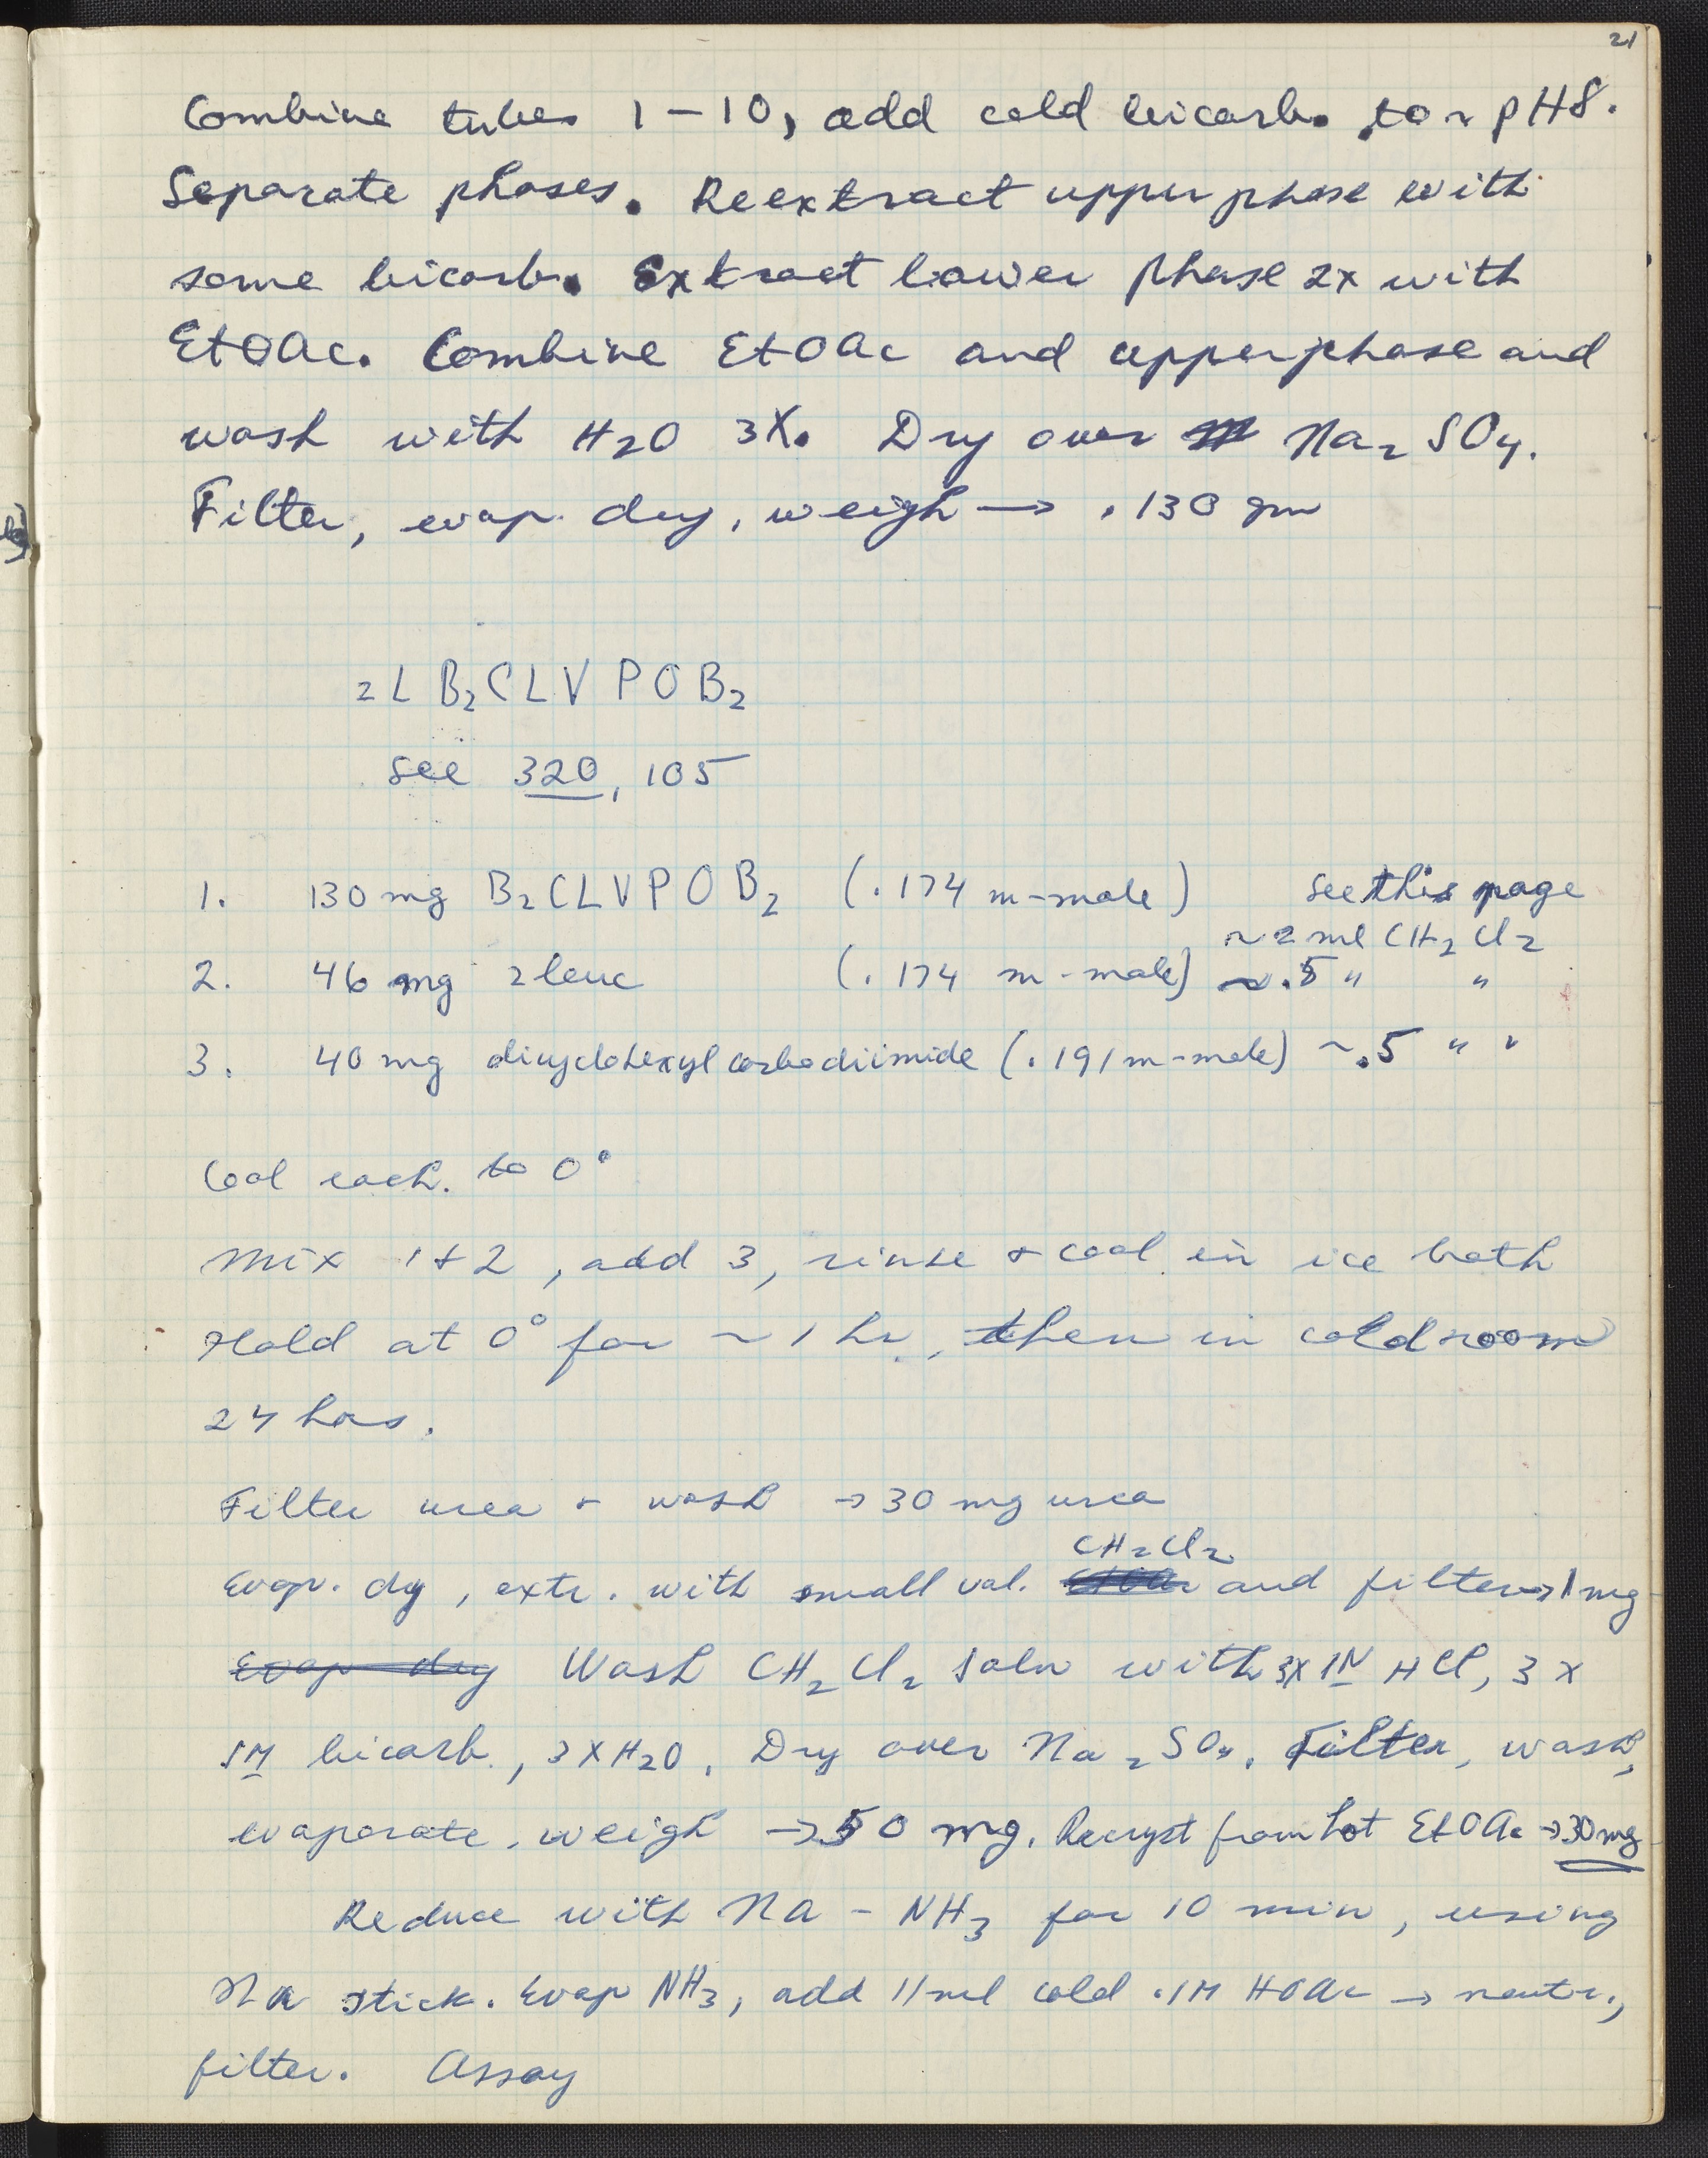 21
Combine tubes 1-10, add cold bicarb. to ~ pH 8.
Separate phases. Reextract upper phase with
some bicarb. Extract lower phase 2x with
EtOAc. Combine EtOAc and upper phase and
wash with H2O 3X. Dry over Na2SO4.
Filter, evap. dry, weigh → .130 gm
zL B2CLVPOB2
see 320, 105
1. 130 mg B2CLVPOB2 (.174 m-mole) see this page
~2 ml CH2Cl2
2. 46 mg zleuc (.174 m-mole) ~.5 " "
3. 40 mg dicyclohexylcarbodiimide (.191 m-mole) ~.5 " "
Cool each. to 0°
Mix 1+2, add 3, rinse + cool in ice bath
Hold at 0° for ~ 1 hr, then in cold room
24 hrs.
Filter urea + wash → 30 mg urea
CH2Cl2
Evap. dry, extr. with small vol. EtOAc and filter → 1 mg
Evap dry Wash CH2Cl2 soln with 3X 1N HCl, 3X
1M bicarb., 3XH2O. Dry over Na2SO4. Filter, wash,
evaporate, weigh → 50 mg. Recryst from hot EtOAc → 30 mg
Reduce with Na-NH3 for 10 min, using
Na stick. Evap NH3, add 11 ml cold .1M HOAc → neutr.,
filter. Assay